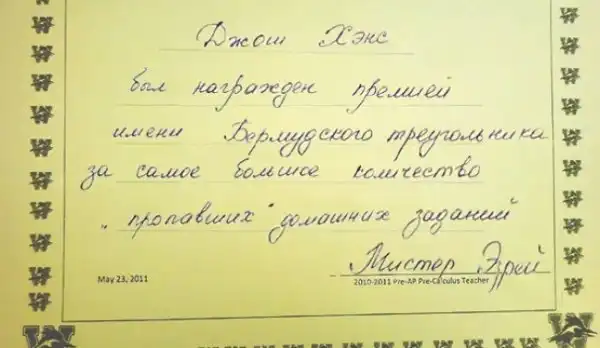 Джош Хэнс
был награжден премией
имени Бермудского треугольника
за самое большое количество
„пропавших" домашних заданий
Мистер Эрей
May 23, 2011
2010-2011 Pre-AP Pre-Calculus Teacher